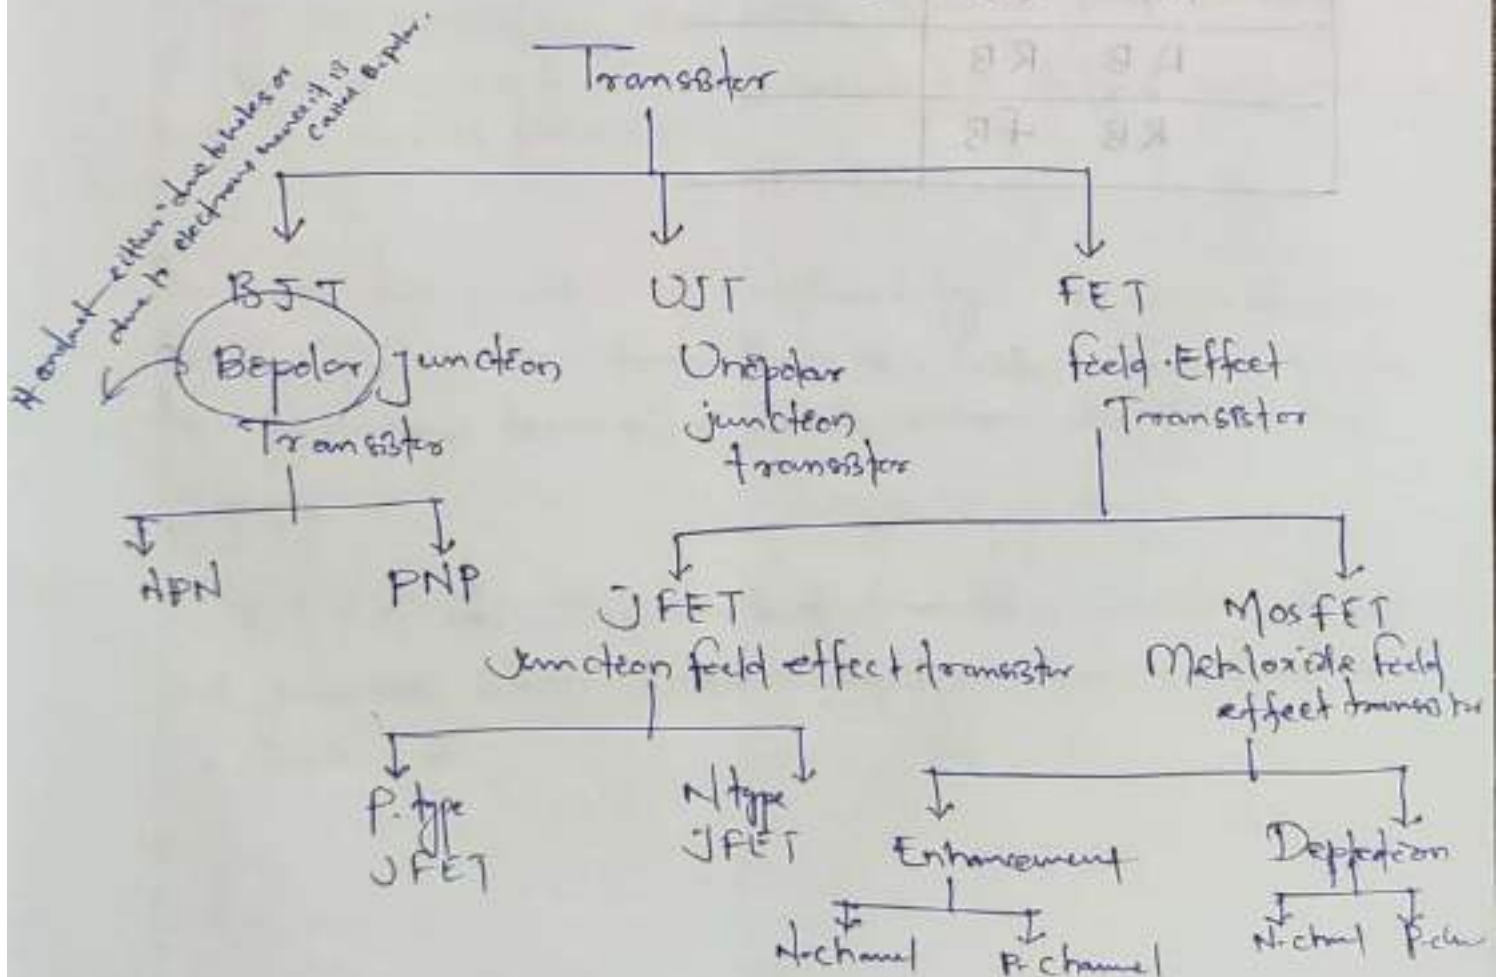 Transistor
It conduct either due to holes or
due to electrons hence it is
called Bipolar.
BJT
Bipolar Junction
Transistor
UJT
Unipolar
junction
transistor
FET
Field-Effect
Transistor
NPN
PNP
JFET
Junction field effect transistor
MosFET
Metaloxide field
effect transistor
P-type
JFET
N type
JFET
Enhancement
Depletion
N-channel
P-channel